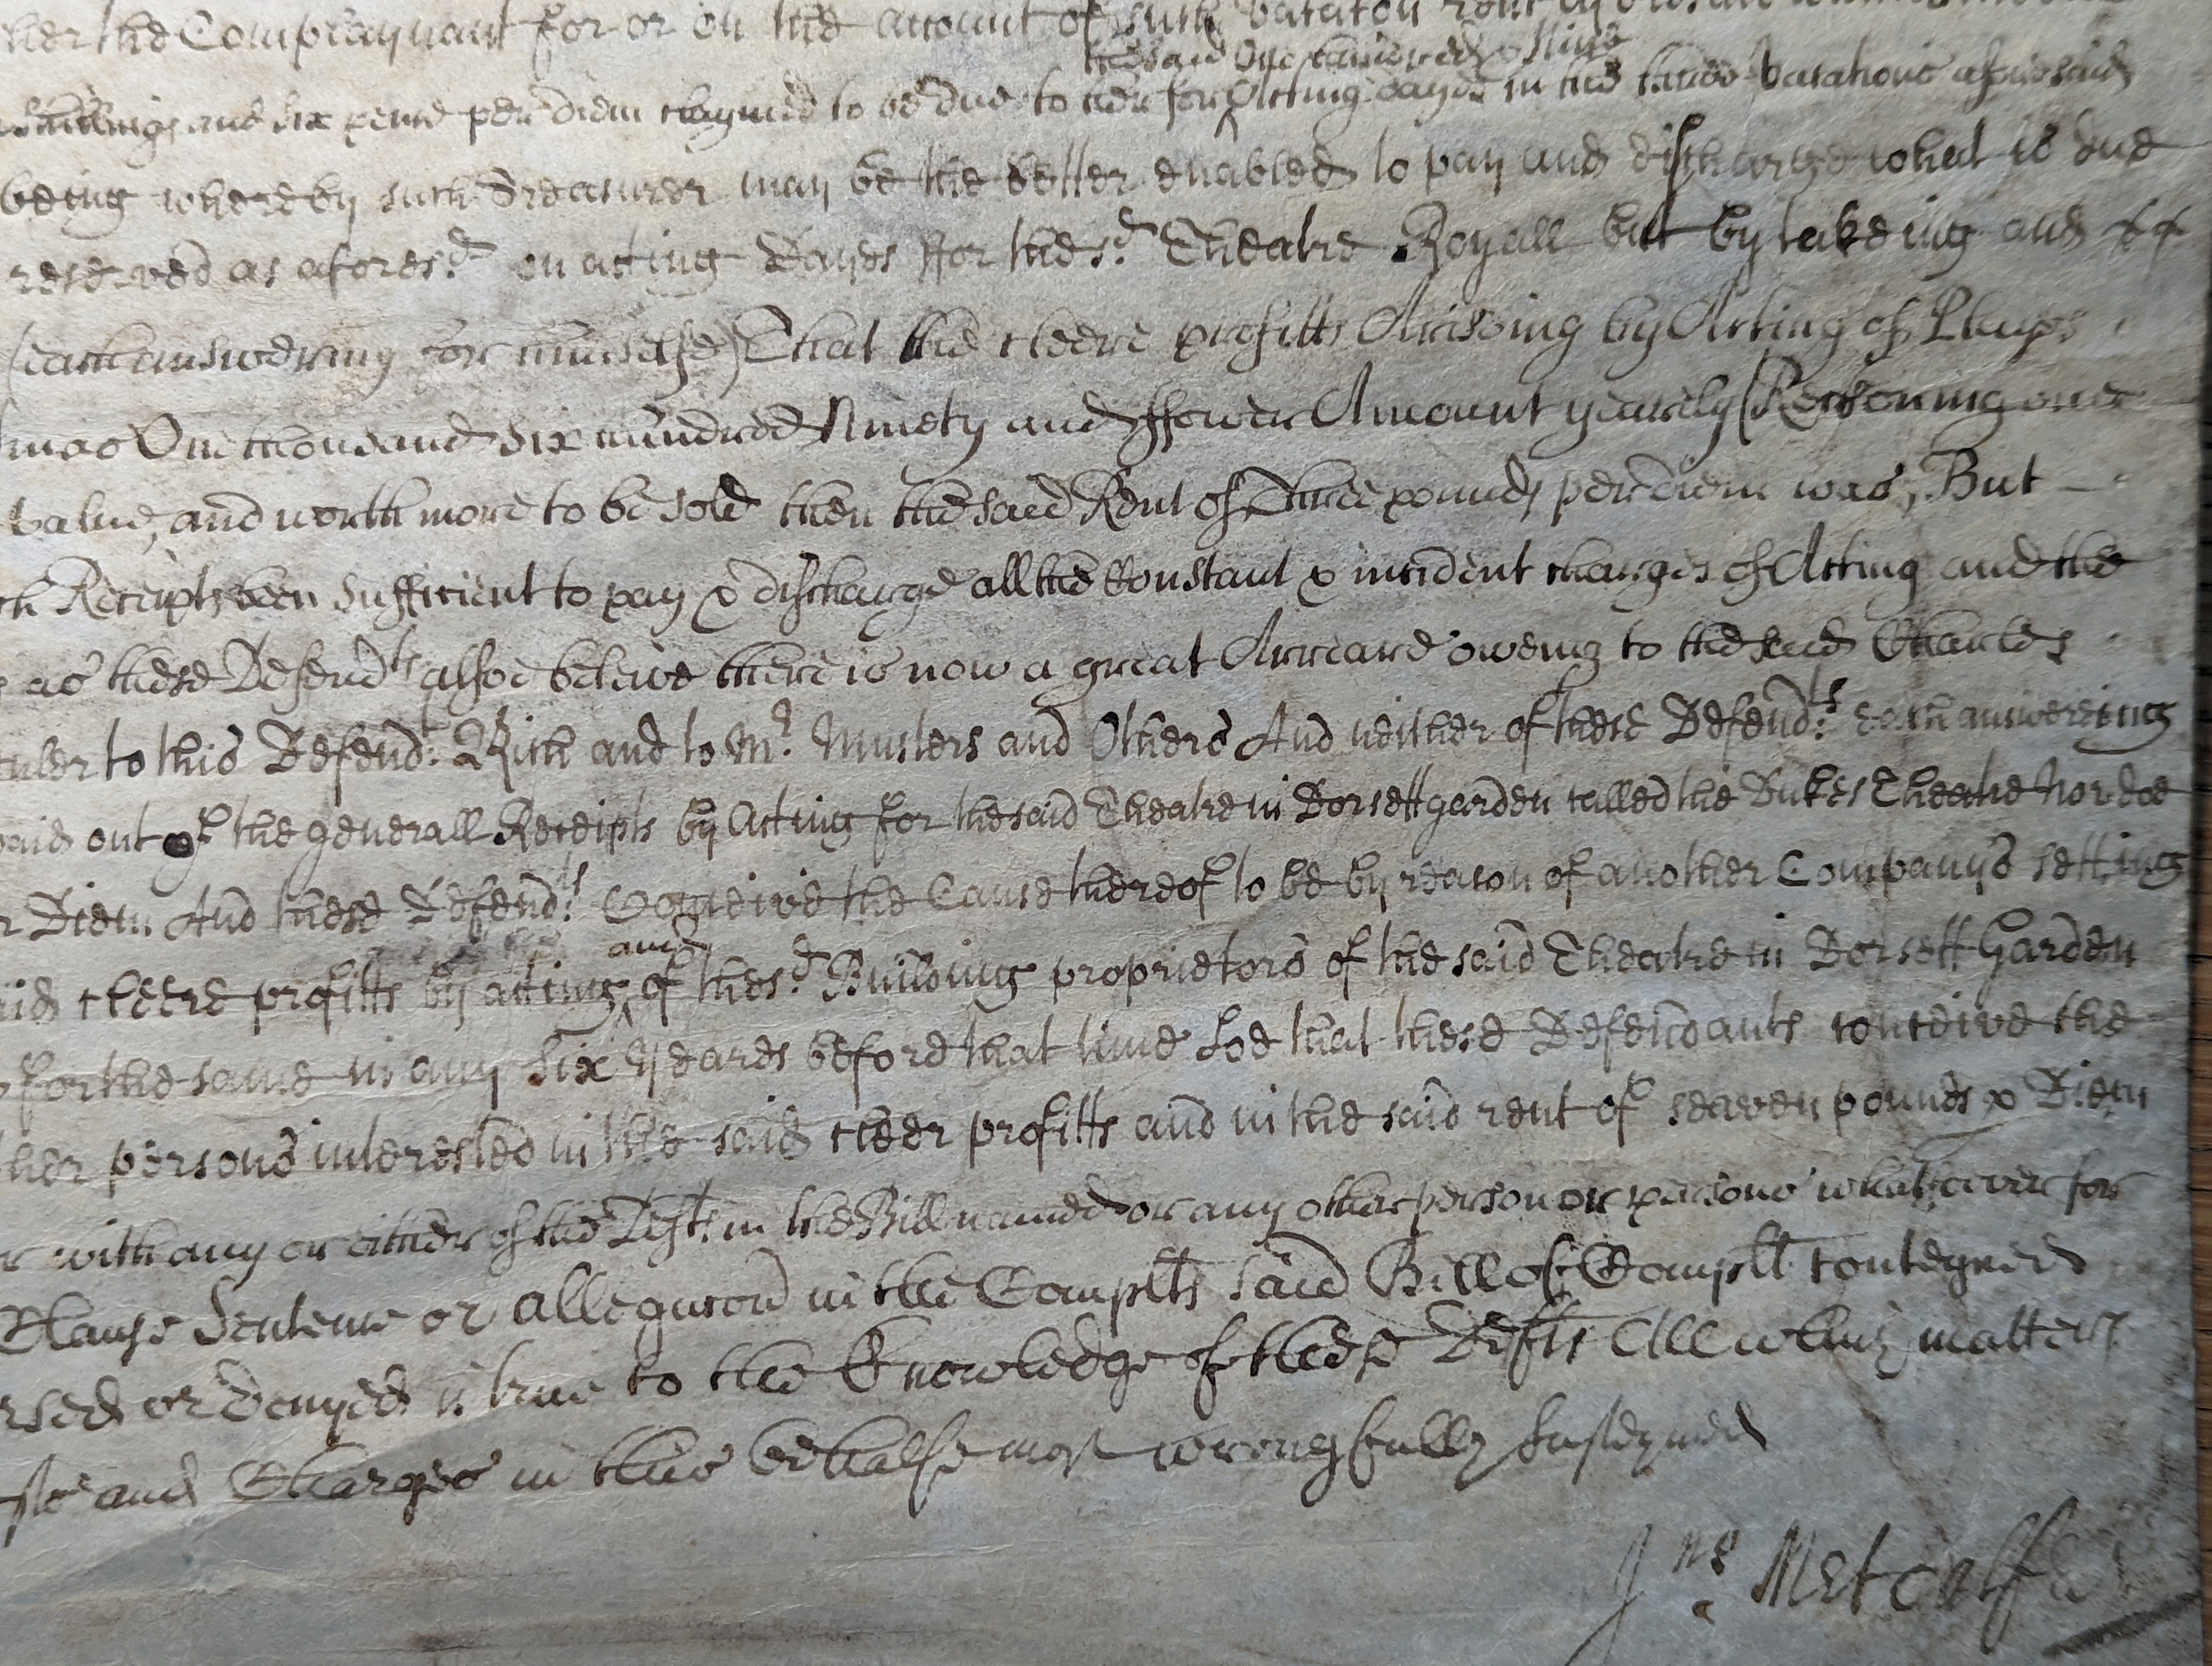 her the Complaynant for or on the account of such vacacon rent
the said One hundred & Nine
shillings and six pence per diem claymed to be due to her for Acting dayes in the three vacations aforesaid
being whereby such Treasurer may be the better enabled to pay and discharge what is due
reserved as afores.d on acting Dayes ffor the s.d Theatre Royall but by takeing and
(each answering for himselfe) That the cleere profitts Ariseing by Acting of Playes
mas One thousand six hundred Ninety and ffower Amount yearely (Reckoning one
value, and worth more to be sold then the said Rent of Three pounds per diem was, But
ch Receipts been sufficient to pay & discharge all the Constant & incident charges of Acting and the
as these Defend.ts alsoe beleive there is now a great Arreare oweing to the said Charles
to this Defend.t Rich and to M.r Musters and Others And neither of these Defend.ts each answereing
paid out of the generall Receipts by Acting for the said Theatre in Dorsett garden called the Dukes Theatre Nor doe
r Diem And these Defend.ts Conceive the Cause thereof to be by reason of another Companyes setting
and
said cleere profitts by acting of the s.d Building proprietors of the said Theatre in Dorsett Garden
for the same in any six yeares before that time Soe that these Defendants conceive the
her persons interested in the said cleer profitts and in the said rent of seaven pounds p Diem
r with any or either of the Defts in the Bill named or any other person or persons whatsoever for
Clause Sentence or allegacon in the Complts said Bill of Complt conteyned
rsed or denyed is true to the Knowledge of these Defts All which matters
sts and Charges in this behalfe most wrongfully susteyned
Jno Metcalfe